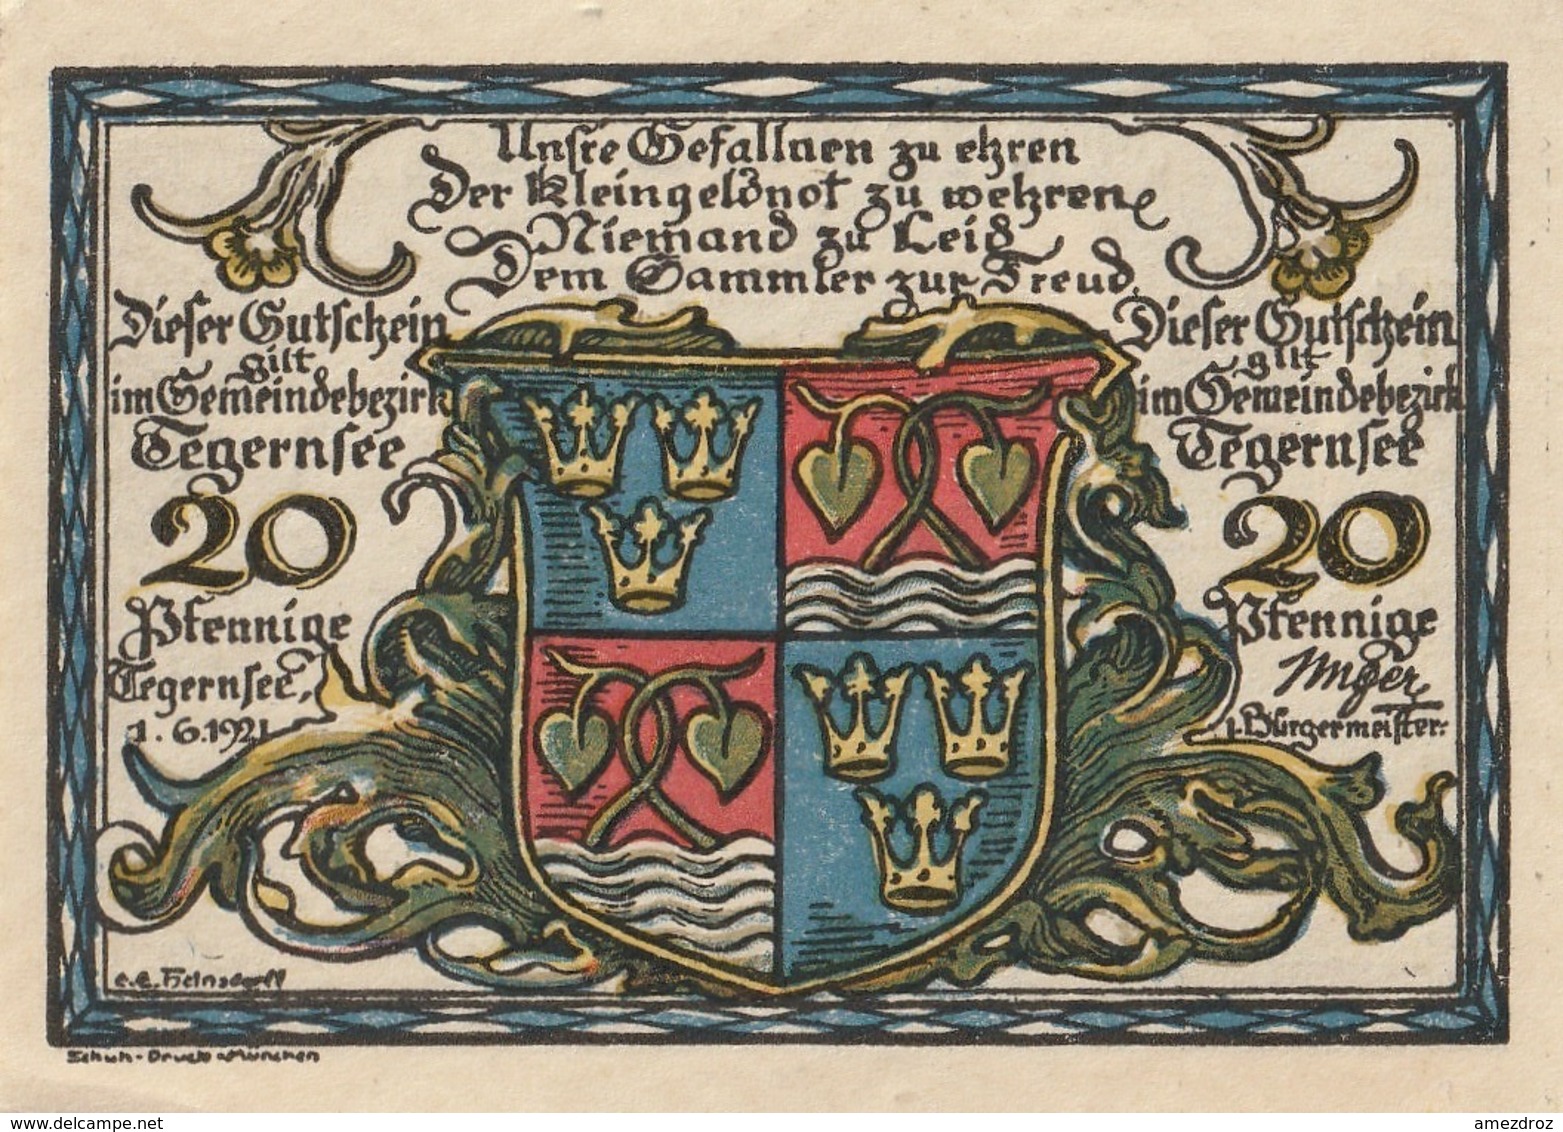 Unsre Gefallnen zu ehren
Der Kleingeldnot zu wehren
Niemand zu Leid
Dem Sammler zur Freud.
Dieser Gutschein
gilt
im Gemeindebezirk
Tegernsee
20
Pfennige
Tegernsee,
1.6.1921
Dieser Gutschein
gilt
im Gemeindebezirk
Tegernsee
20
Pfennige
1. Bürgermeister:
Schuh-Druck München
www.delcampe.net
amezdroz